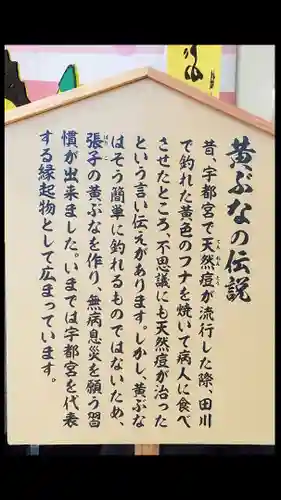 黄ぶなの伝説
昔、宇都宮で天然痘が流行した際、田川
てんねんとう
で釣れた黄色のフナを焼いて病人に食べ
させたところ、不思議にも天然痘が治った
という言い伝えがあります。しかし、黄ぶな
はそう簡単に釣れるものではないため、
張子の黄ぶなを作り、無病息災を願う習
はりこ
慣が出来ました。いまでは宇都宮を代表
する縁起物として広まっています。